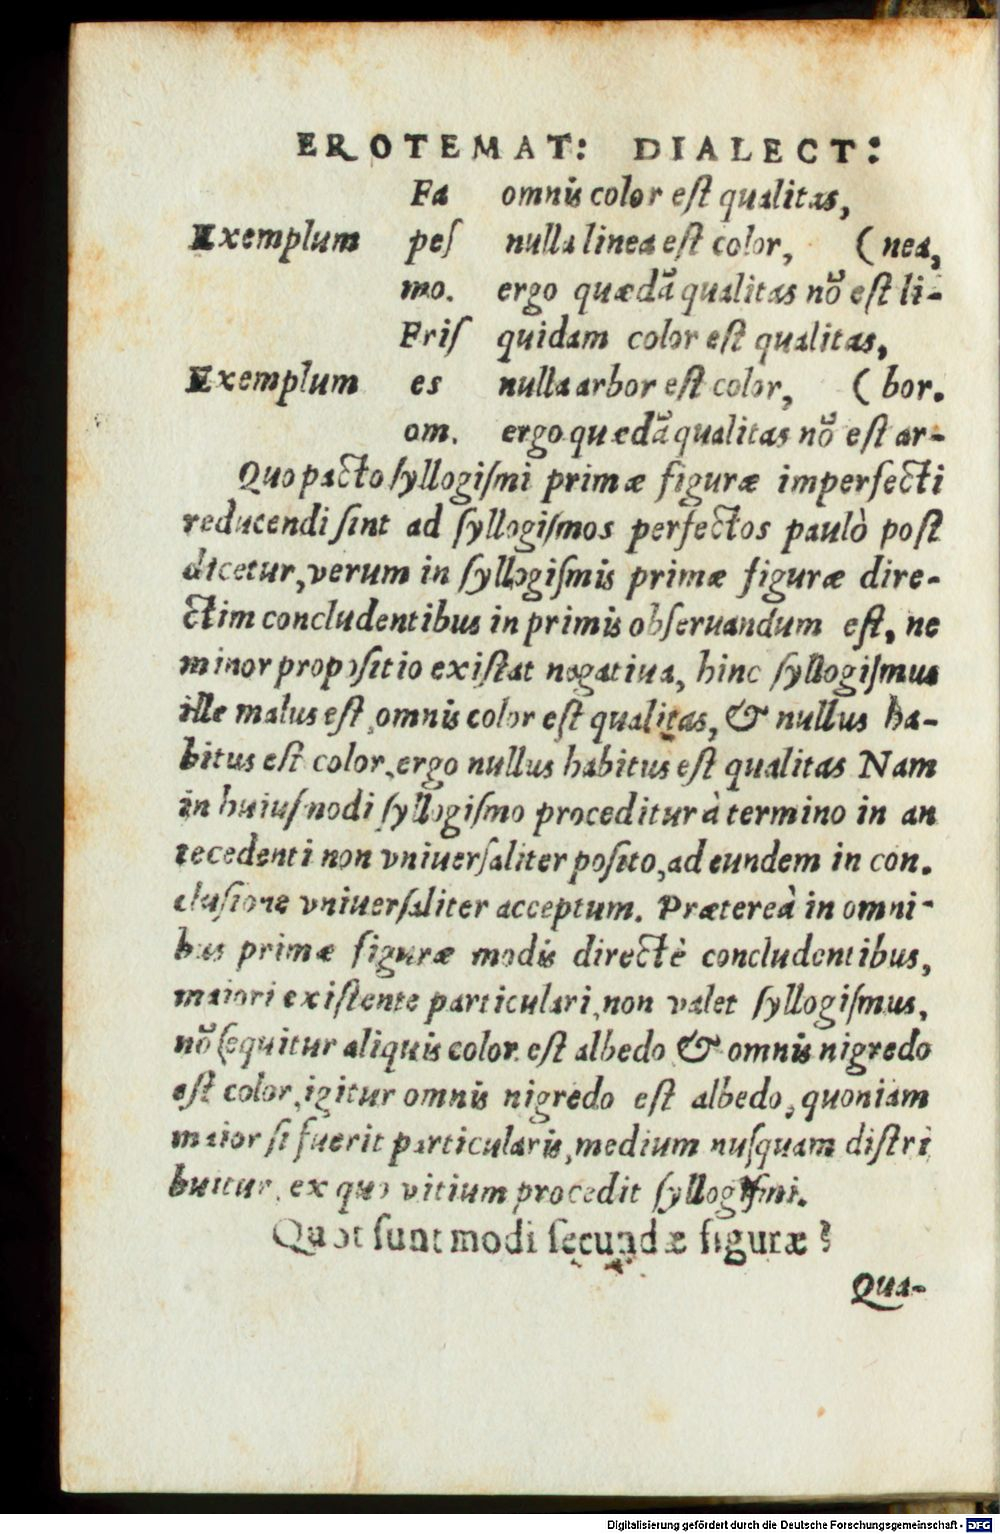 EROTEMAT: DIALECT:
Fa omnis color est qualitas,
Exemplum pes nulla linea est color, (nea,
mo. ergo quædã qualitas nõ est li-
Fris quidam color est qualitas,
Exemplum es nulla arbor est color, (bor.
om. ergo quædã qualitas nõ est ar-
Quo pacto syllogismi primæ figuræ imperfecti
reducendi sint ad syllogismos perfectos paulò post
dicetur, verum in syllogismis primæ figuræ dire-
ctim concludentibus in primis obseruandum est, ne
minor propositio existat negatiua, hinc syllogismus
ille malus est, omnis color est qualitas, & nullus ha-
bitus est color, ergo nullus habitus est qualitas Nam
in huiusmodi syllogismo proceditur à termino in an
tecedenti non vniuersaliter posito, ad eundem in con.
clusione vniuersaliter acceptum. Prætereà in omni-
bus primæ figuræ modis directè concludentibus,
maiori existente particulari, non valet syllogismus,
nõ sequitur aliquis color est albedo & omnis nigredo
est color, igitur omnis nigredo est albedo, quoniam
maior si fuerit particularis, medium nusquam distri
buitur, ex quo vitium procedit syllogismi.
Quot sunt modi secundæ figuræ?
Qua-
Digitalisierung gefördert durch die Deutsche Forschungsgemeinschaft - DFG